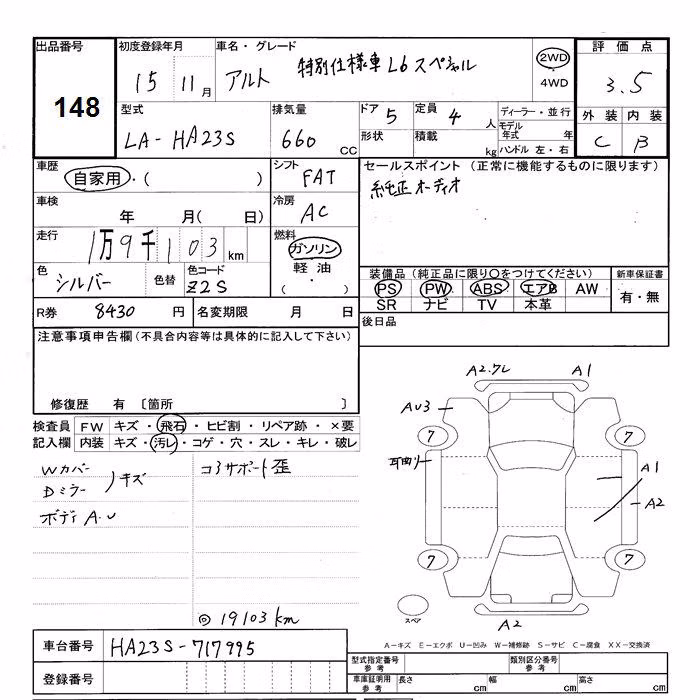 出品番号 初度登録年月 車名・グレード 評価点
148 15 11月 アルト 特別仕様車 Lb スペシャル 2WD 4WD 3.5
型式 排気量 ドア 5 定員 4 人 ディーラー・並行 外装 内装
LA-HA23S 660 CC 形状 積載 kg モデル年式 年 ハンドル 左・右 C B
車歴 自家用・( ) シフト FAT セールスポイント (正常に機能するものに限ります)
車検 年 月( 日) 冷房 AC 純正オーディオ
走行 1万9千103 km 燃料 ガソリン 軽油・( )
色 シルバー 色替 色コード Z2S 装備品 (純正品に限り○をつけてください) 新車保証書
PS PW ABS エアB AW 有・無
SR ナビ TV 本革
R券 8430 円 名変期限 月 日 後日品
注意事項申告欄 (不具合内容等は具体的に記入して下さい)
修復歴 有 〔箇所 〕
検査員 FW キズ・飛石・ヒビ割・リペア跡・×要
記入欄 内装 キズ・汚レ・コゲ・穴・スレ・キレ・破レ
Wカバー
Dミラー )キズ
ボディ A.U
コアサポート歪
◎ 19103 km
A2.ワレ A1
AU3
7 7
A1
A2
7 7
スペア
A2
A-キズ E-エクボ U-凹み W-補修跡 S-サビ C-腐食 XX-交換済
車台番号 HA23S-717995
登録番号
型式指定番号 参考 類別区分番号 参考
車庫証明用 参考 長さ cm 幅 cm 高さ cm